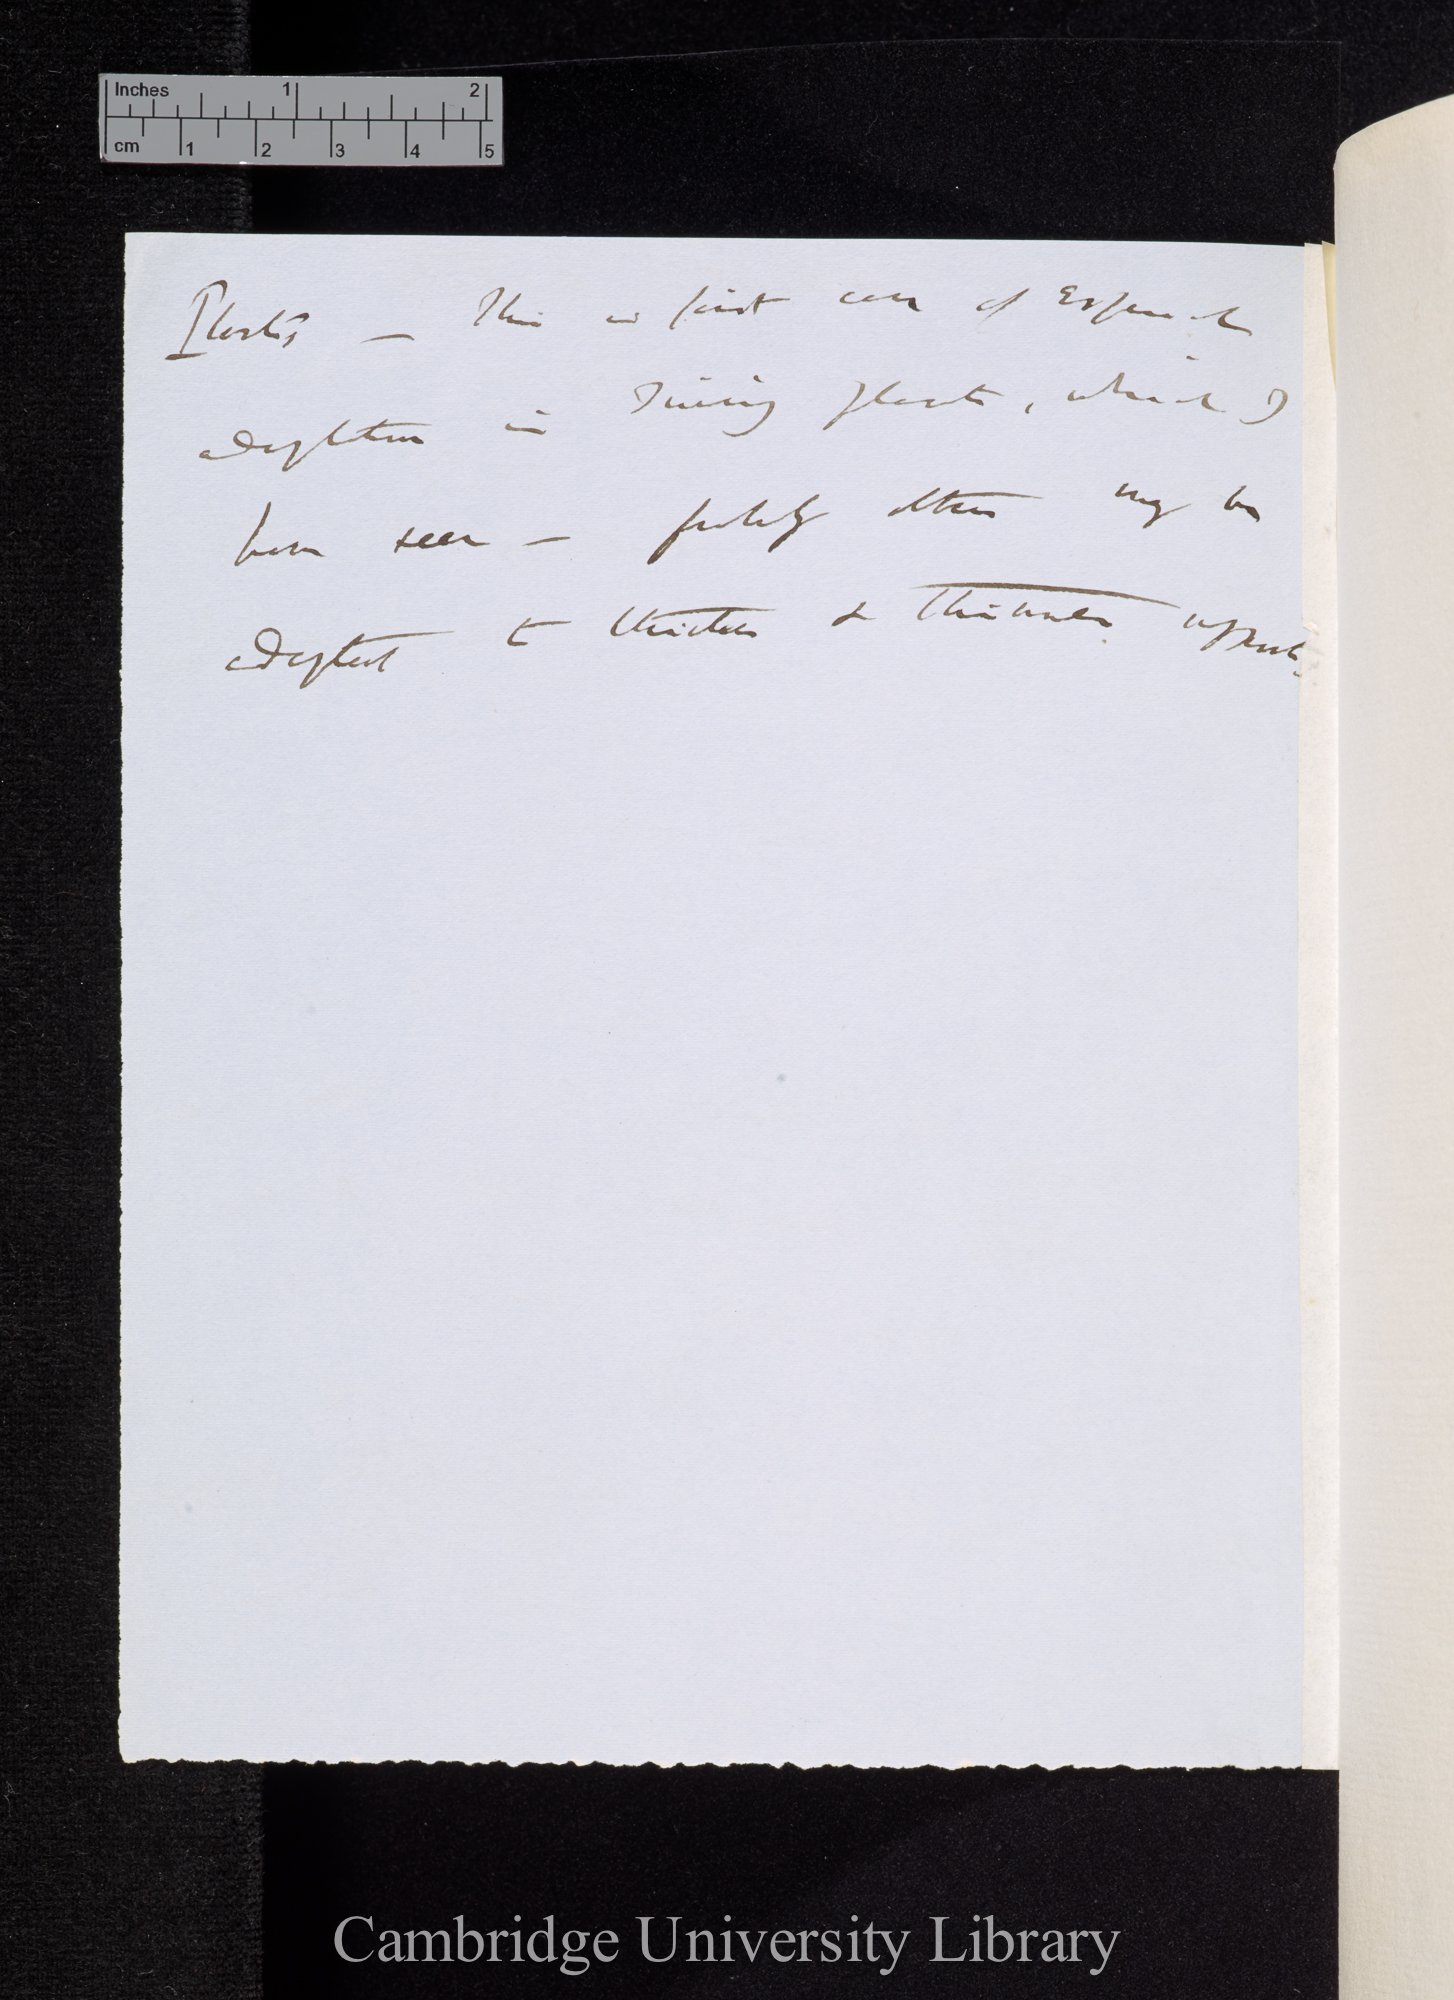 Inches 1 2
cm 1 2 3 4 5
— This is first case of Especial
adaptation in Twining plants, which I
have seen — probably others may be
adapted to thicker & thinner supports
Cambridge University Library